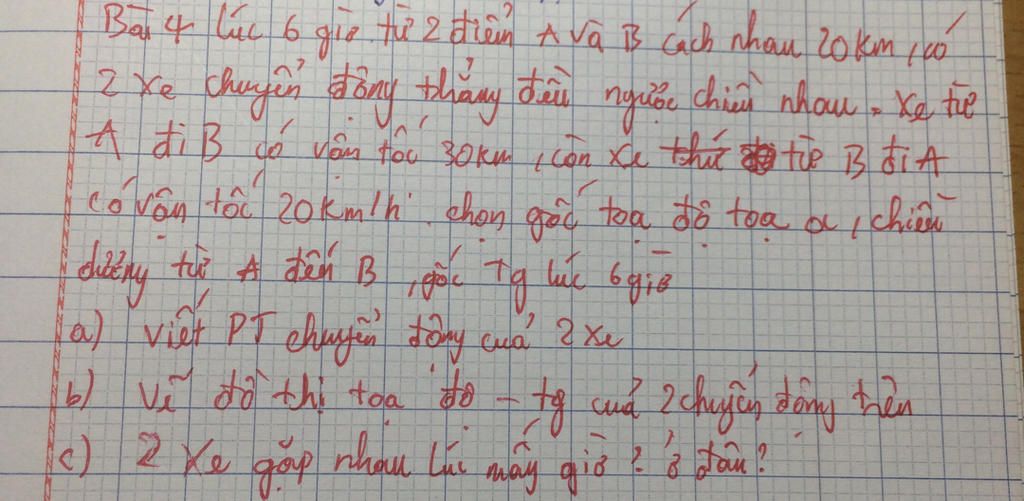 Bài 4 lúc 6 giờ từ 2 điểm A và B cách nhau 20 km, có
2 xe chuyển động thẳng đều ngược chiều nhau. xe từ
A đi B có vận tốc 30km, còn xe thứ từ B đi A
có vận tốc 20km/h. chọn gốc tọa độ tọa a, chiều
dương từ A đến B, gốc tg lúc 6 giờ
a) viết PT chuyển động của 2 xe
b) vẽ đồ thị tọa độ - tg của 2 chuyển động trên
c) 2 xe gặp nhau lúc mấy giờ? ở đâu?